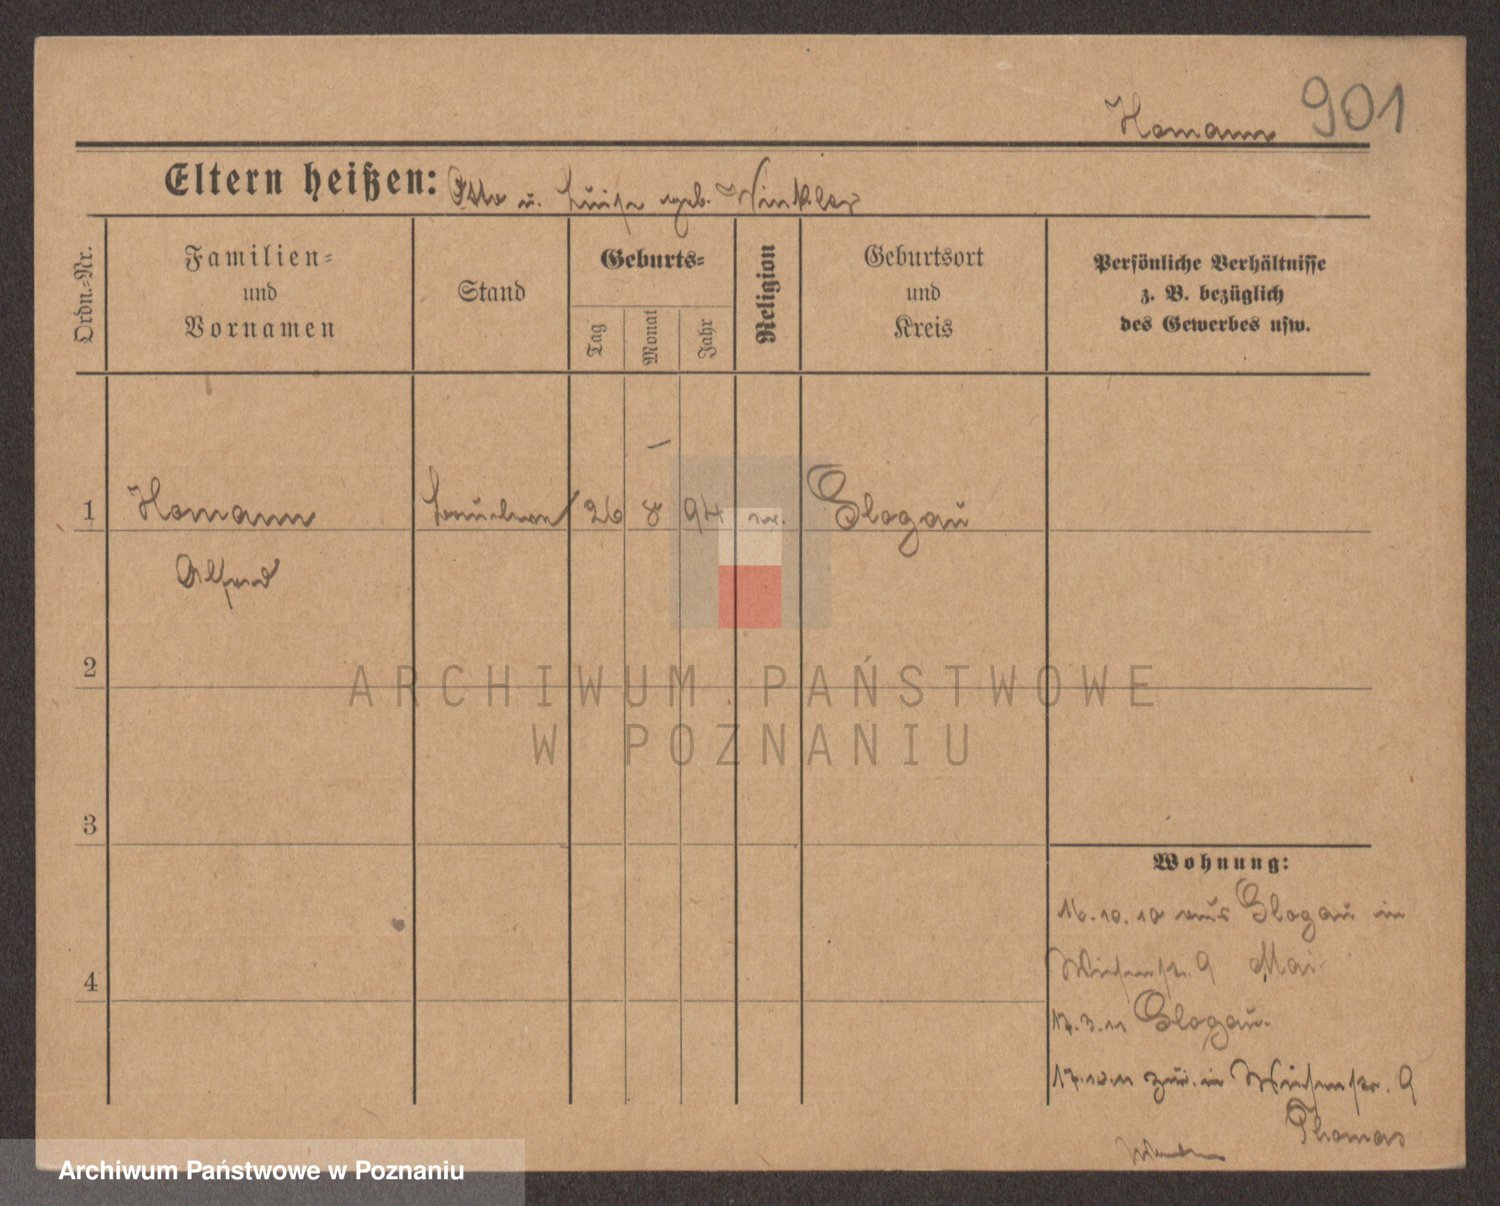 Homann 901
Eltern heißen: Otto u. Luise geb. Winkler
Ordn.=Nr.
Familien=
und
Vornamen
Stand
Geburts=
Tag
Monat
Jahr
Religion
Geburtsort
und
Kreis
Persönliche Verhältnisse
z. B. bezüglich
des Gewerbes usw.
1 Homann 26 8 94 Glogau
Alfred
2
3
4
Wohnung:
16.10.10 aus Glogau in
Wiesenstr. 9 Mai
17.3.11 Glogau.
17.10.11 zur. in Wiesenstr. 9
Thomas
ARCHIWUM PAŃSTWOWE
W POZNANIU
Archiwum Państwowe w Poznaniu